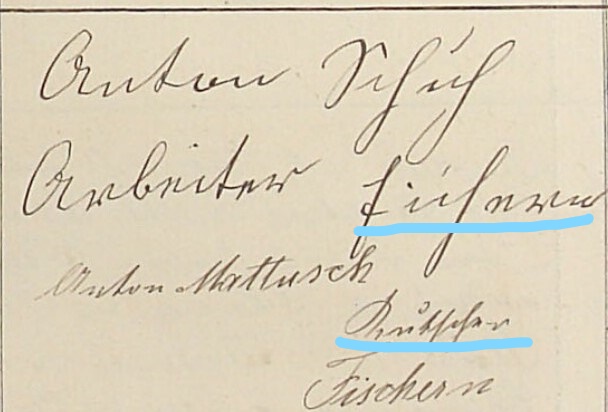 Anton Schuh
Arbeiter Fischern
Anton Mattusch
Kutscher
Fischern